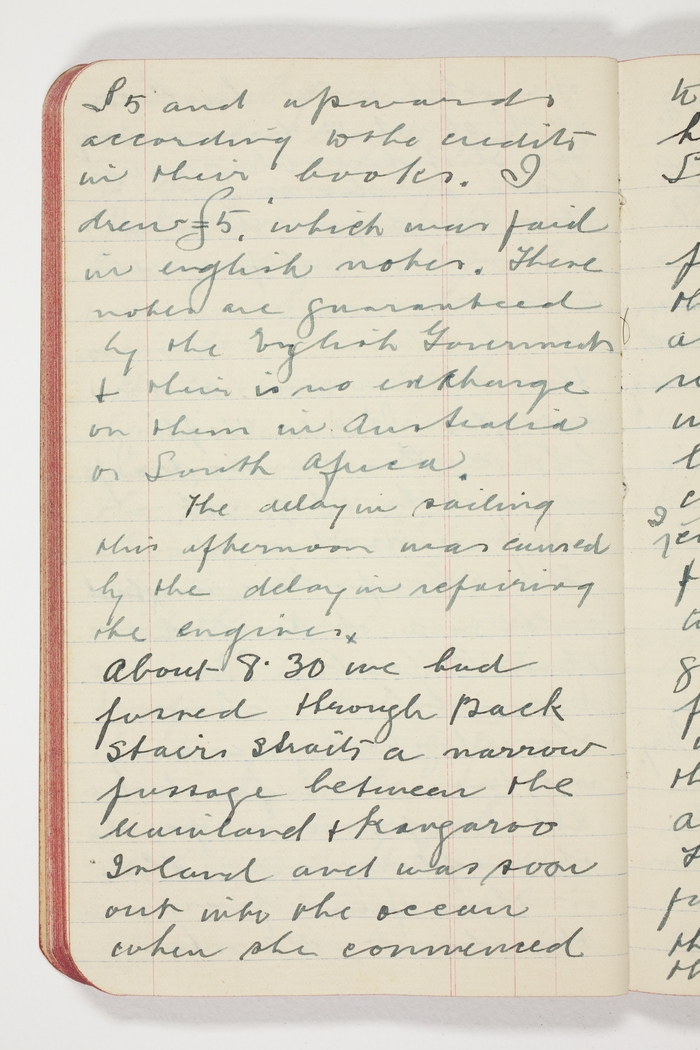 £5 and upwards
according to the credits
in their books. I
drew £5, which was paid
in english notes. These
notes are guaranteed
by the English Government
& their is no exchange
on them in Australia
or South Africa.
The delay in sailing
this afternoon was caused
by the delay in repairing
the engines x
About 8.30 we had
passed through Back
Stairs Straits a narrow
passage between the
Mainland & Kangaroo
Island and was soon
out into the ocean
when she commenced